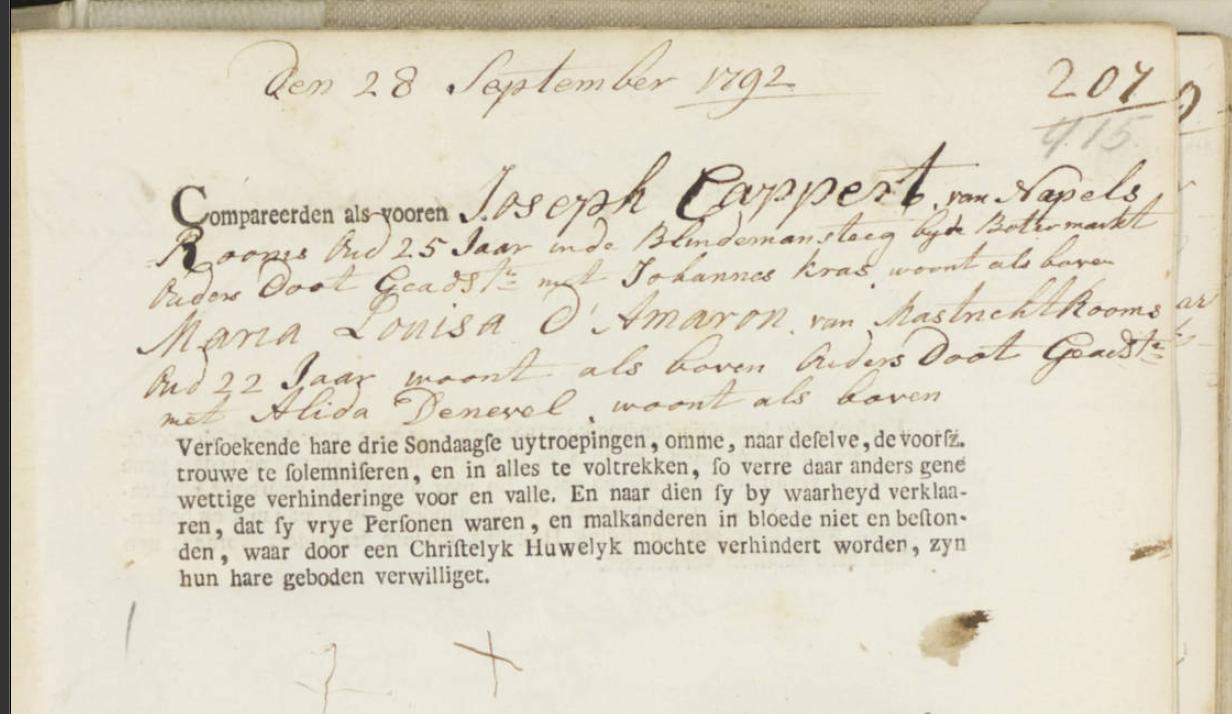 Den 28 September 1792
207
415.
Compareerden als vooren Joseph Cappert, van Napels
Rooms Oud 25 Jaar in de Blindemansteeg by de Botermarkt
Ouders Doot Geadstr met Johannes Kras, woont als boven
Maria Louisa d'Amaron, van Mastricht Rooms
Oud 22 Jaar woont als boven Ouders Doot Geadstr
met Alida Denevel, woont als boven
Verſoekende hare drie Sondaagſe uytroepingen, omme, naar deſelve, de voorſz.
trouwe te ſolemniſeren, en in alles te voltrekken, ſo verre daar anders gene
wettige verhinderinge voor en valle. En naar dien ſy by waarheyd verklaa-
ren, dat ſy vrye Perſonen waren, en malkanderen in bloede niet en beſton-
den, waar door een Chriſtelyk Huwelyk mochte verhindert worden, zyn
hun hare geboden verwilliget.